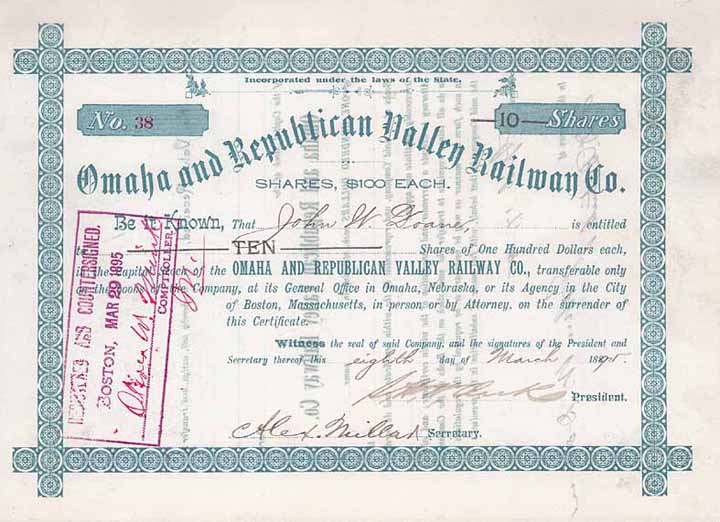 Incorporated under the laws of the State.
No. 38
10 Shares
Omaha and Republican Valley Railway Co.
SHARES, $100 EACH.
Be it Known, That John W. Doane, is entitled
to TEN Shares of One Hundred Dollars each,
in the Capital Stock of the OMAHA AND REPUBLICAN VALLEY RAILWAY CO., transferable only
on the books of the Company, at its General Office in Omaha, Nebraska, or its Agency in the City
of Boston, Massachusetts, in person or by Attorney, on the surrender of
this Certificate.
Witness the seal of said Company, and the signatures of the President and
Secretary thereof, this eighth day of March 1895.
President.
Alex. Millar Secretary.
AND COUNTERSIGNED.
BOSTON, MAR 29 1895
Oliver W.
COMPTROLLER